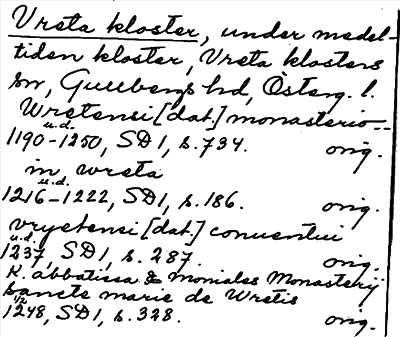 Vreta kloster, under medel-
tiden kloster, Vreta klosters
sn, Gullbergs hd, Österg. l.
Wretensi [dat.] monasterio --
u.d.
1190-1250, SD1, s. 734. orig.
in wreta
u.d.
1216-1222, SD1, s. 186. orig.
vrystensi [dat.] conuentui
u.d.
1237, SD1, s. 287. orig.
K. abbatissa & moniales Monasterij
sancte marie de Wretis
1248, SD1, s. 328. orig.